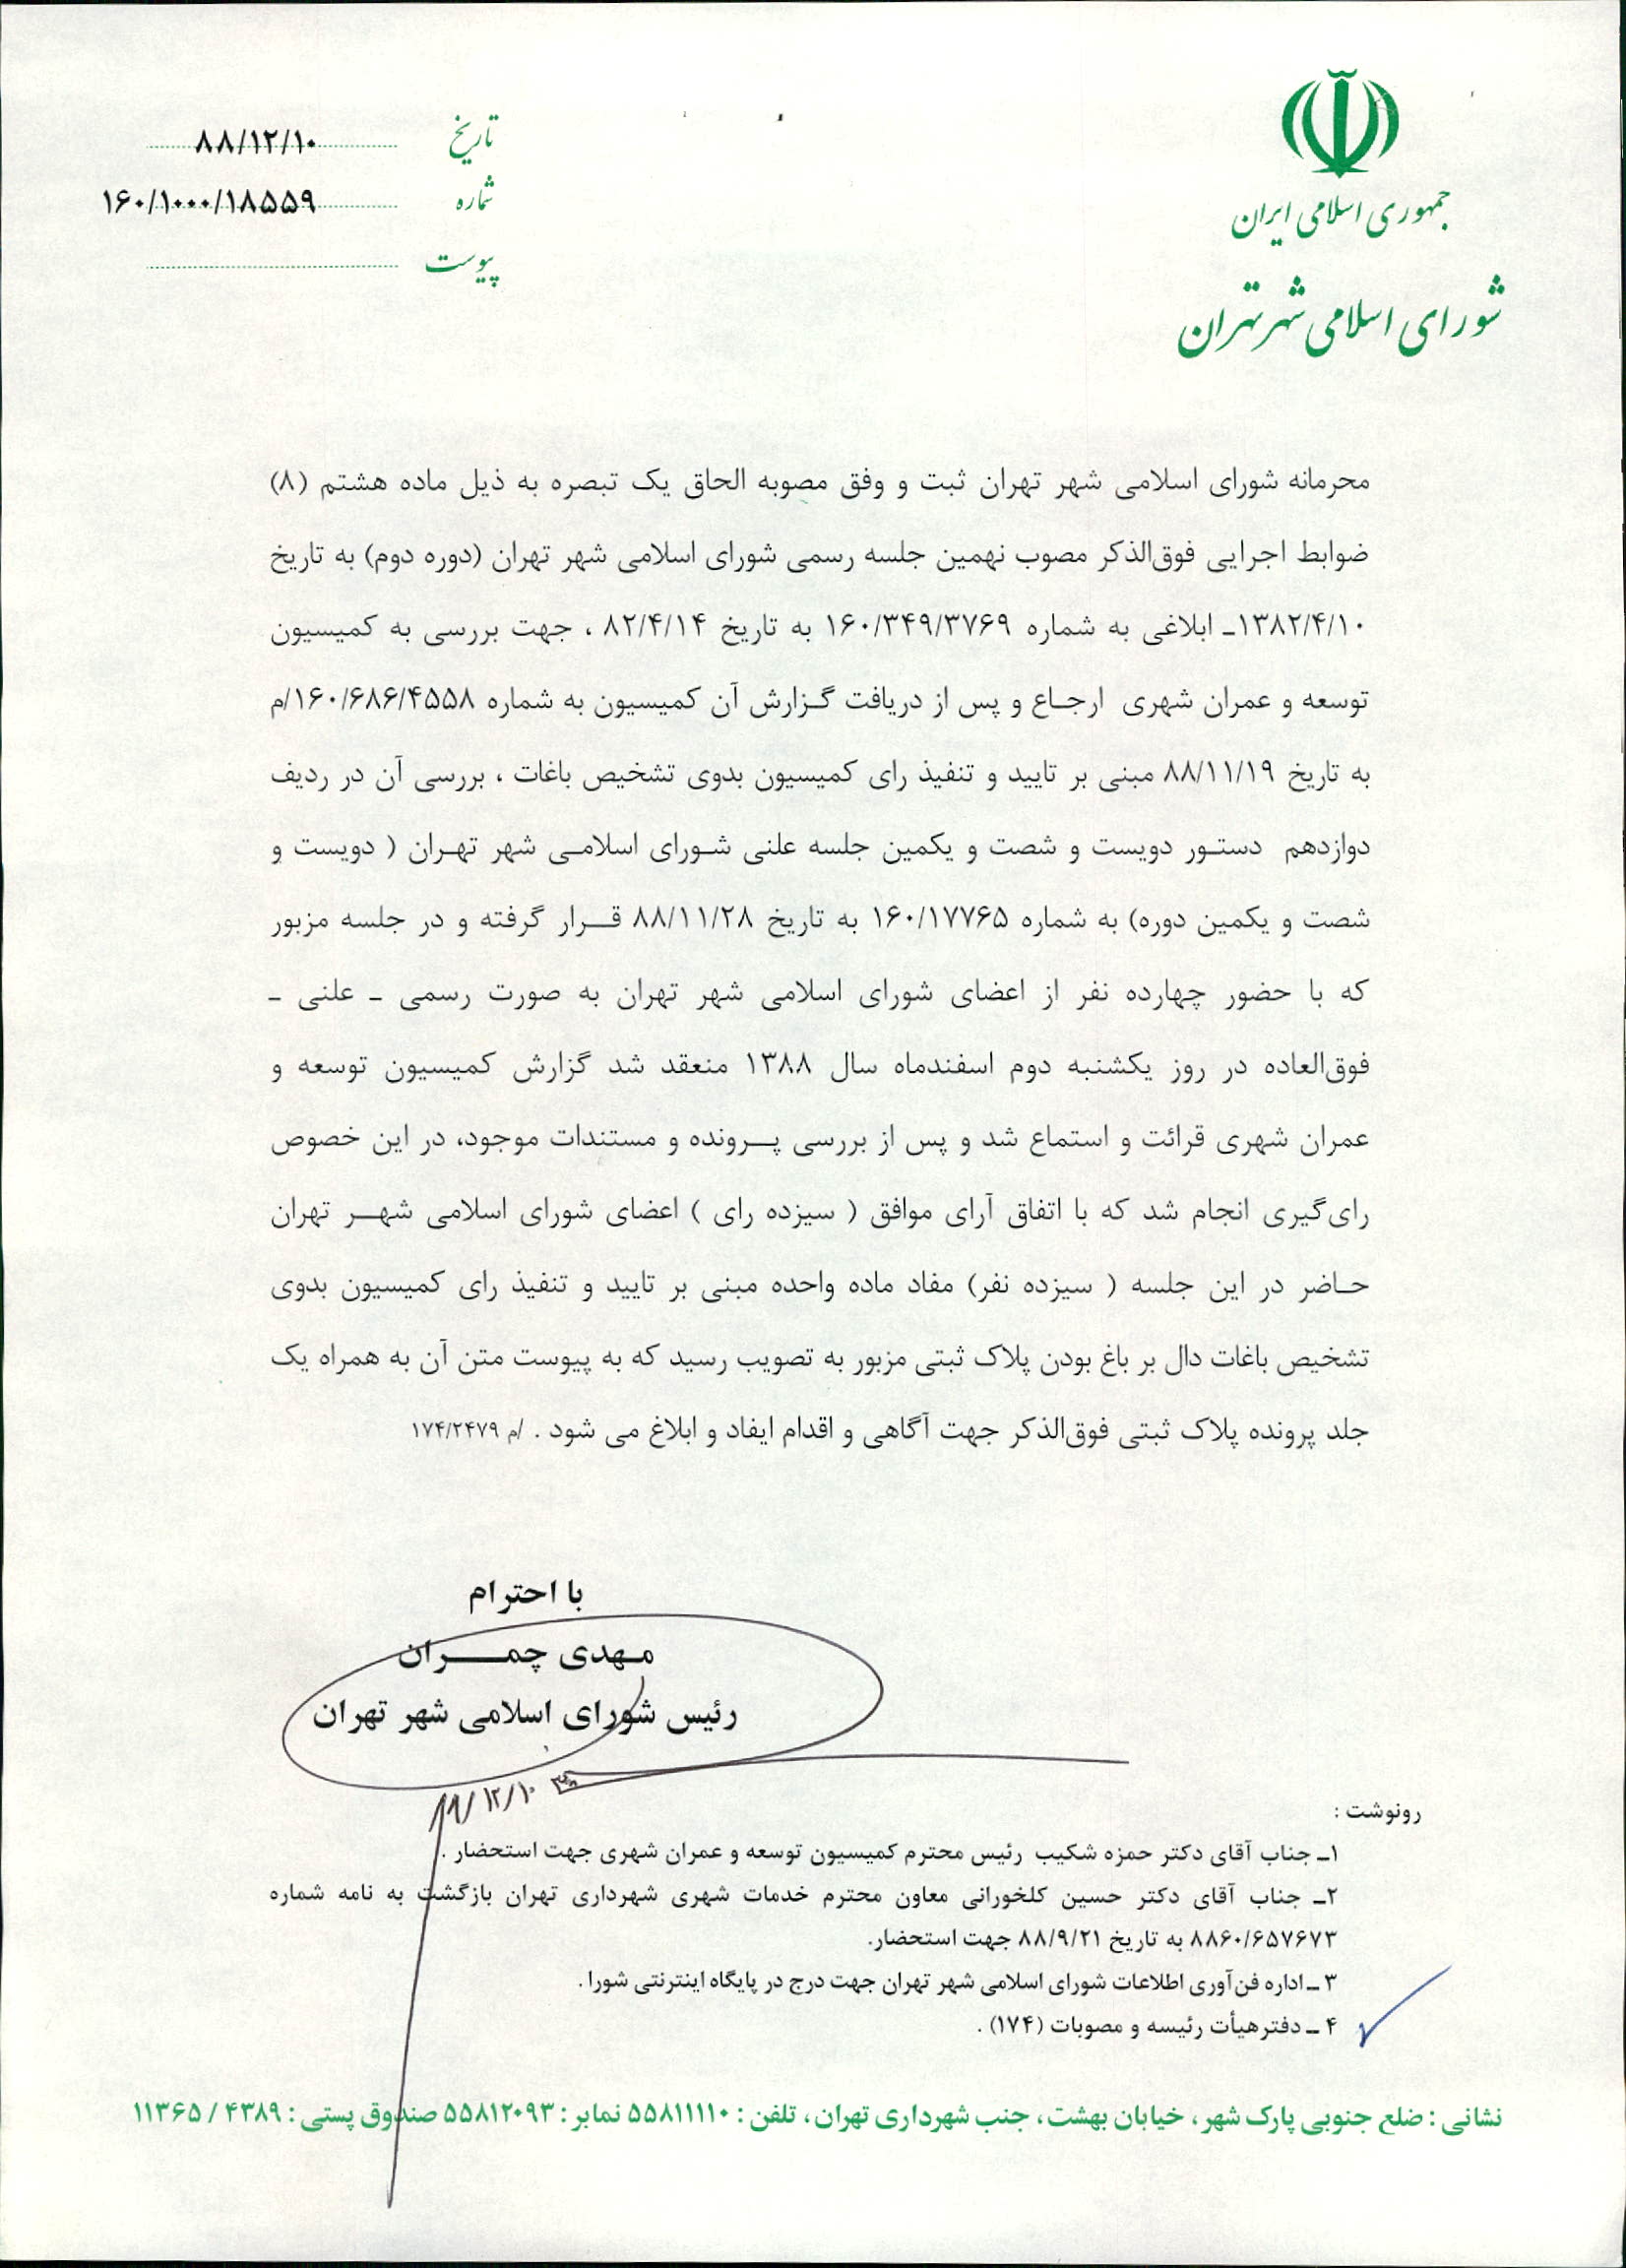 جمهوری اسلامی ایران
شورای اسلامی شهر تهران
تاریخ ۸۸/۱۲/۱۰
شماره ۱۶۰/۱۰۰۰/۱۸۵۵۹
پیوست
محرمانه شورای اسلامی شهر تهران ثبت و وفق مصوبه الحاق یک تبصره به ذیل ماده هشتم (۸)
ضوابط اجرایی فوق‌الذکر مصوب نهمین جلسه رسمی شورای اسلامی شهر تهران (دوره دوم) به تاریخ
۱۳۸۲/۴/۱۰ـ ابلاغی به شماره ۱۶۰/۳۴۹/۳۷۶۹ به تاریخ ۸۲/۴/۱۴ ، جهت بررسی به کمیسیون
توسعه و عمران شهری ارجـاع و پس از دریافت گـزارش آن کمیسیون به شماره ۱۶۰/۶۸۶/۴۵۵۸/م
به تاریخ ۸۸/۱۱/۱۹ مبنی بر تایید و تنفیذ رای کمیسیون بدوی تشخیص باغات ، بررسی آن در ردیف
دوازدهم دستـور دویست و شصت و یکمین جلسه علنی شـورای اسلامـی شهر تهـران ( دویست و
شصت و یکمین دوره) به شماره ۱۶۰/۱۷۷۶۵ به تاریخ ۸۸/۱۱/۲۸ قـــرار گرفته و در جلسه مزبور
که با حضور چهارده نفر از اعضای شورای اسلامی شهر تهران به صورت رسمی ـ علنی ـ
فوق‌العاده در روز یکشنبه دوم اسفندماه سال ۱۳۸۸ منعقد شد گزارش کمیسیون توسعه و
عمران شهری قرائت و استماع شد و پس از بررسی پـــرونده و مستندات موجود، در این خصوص
رای‌گیری انجام شد که با اتفاق آرای موافق ( سیزده رای ) اعضای شورای اسلامی شهـــر تهران
حـاضر در این جلسه ( سیزده نفر) مفاد ماده واحده مبنی بر تایید و تنفیذ رای کمیسیون بدوی
تشخیص باغات دال بر باغ بودن پلاک ثبتی مزبور به تصویب رسید که به پیوست متن آن به همراه یک
جلد پرونده پلاک ثبتی فوق‌الذکر جهت آگاهی و اقدام ایفاد و ابلاغ می شود . /م ۱۷۴/۲۴۷۹
با احترام
مـهدی چمـــــران
رئیس شورای اسلامی شهر تهران
رونوشت :
۱ـ جناب آقای دکتر حمزه شکیب رئیس محترم کمیسیون توسعه و عمران شهری جهت استحضار .
۲ـ جناب آقای دکتر حسین کلخورانی معاون محترم خدمات شهری شهرداری تهران بازگشت به نامه شماره
۸۸۶۰/۶۵۷۶۷۳ به تاریخ ۸۸/۹/۲۱ جهت استحضار.
۳ ـ اداره فن‌آوری اطلاعات شورای اسلامی شهر تهران جهت درج در پایگاه اینترنتی شورا .
۴ ـ دفترهیأت رئیسه و مصوبات (۱۷۴) .
نشانی : ضلع جنوبی پارک شهر ، خیابان بهشت ، جنب شهرداری تهران ، تلفن : ۵۵۸۱۱۱۱۰ نمابر : ۵۵۸۱۲۰۹۳ صندوق پستی : ۴۳۸۹ / ۱۱۳۶۵